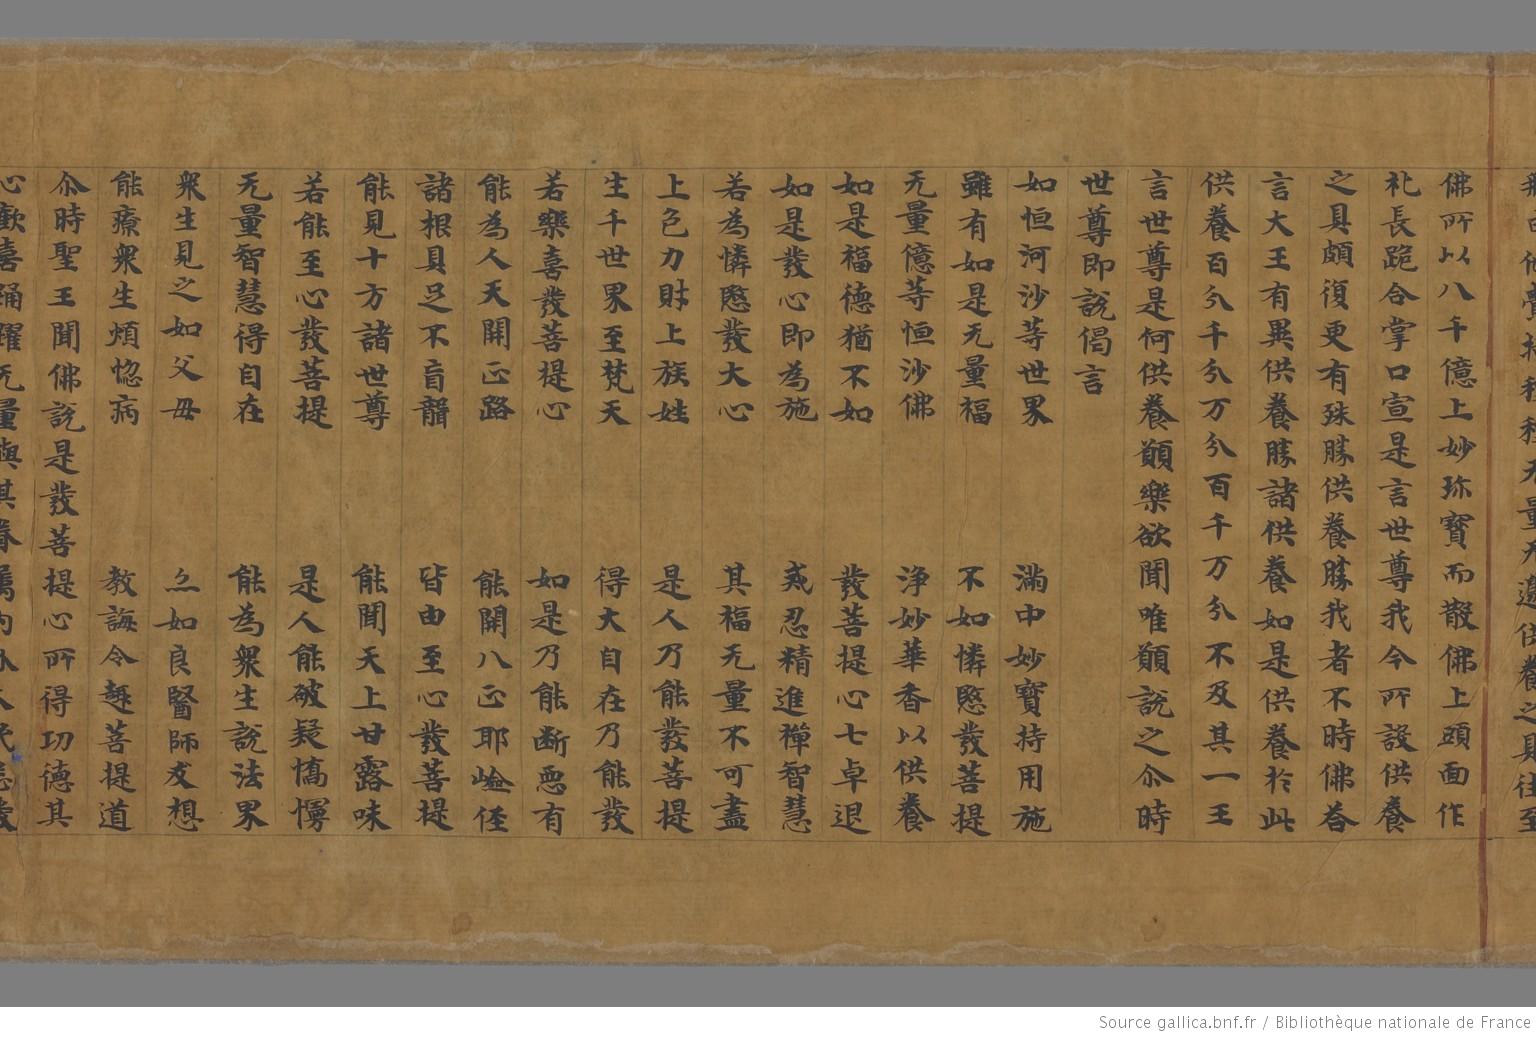 佛所以八千億上妙珎寳而散佛上頭面作
礼長跪合掌口宣是言世尊我今所設供養
之具頗復更有殊勝供養勝我者不時佛荅
言大王有異供養勝諸供養如是供養扵此
供養百分千分万分百千万分不及其一王
言世尊是何供養願樂欲聞唯願說之尒時
世尊即說偈言
如恒河沙等世界 滿中妙寳持用施
雖有如是无量福 不如憐愍發菩提
无量億等恒沙佛 浄妙華香以供養
如是福德猶不如 發菩提心七卓退
如是發心即為施 戒忍精進禪智慧
若為憐愍發大心 其福无量不可盡
上色力財上族姓 是人乃能發菩提
生千世界至梵天 得大自在乃能發
若樂喜發菩提心 如是乃能断惡有
能為人天開正路 能開八正耶嶮侄
諸根具足不盲聾 皆由至心發菩提
能見十方諸世尊 能聞天上甘露味
若能至心發菩提 是人能破疑憍慢
无量智慧得自在 能為衆生說法界
衆生見之如父母 亦如良醫師友想
能療衆生煩惚病 教誨令趣菩提道
尒時聖王聞佛說是發菩提心所得功德其
心歡喜踊躍无量與其眷屬内外人民悉發
Source gallica.bnf.fr / Bibliothèque nationale de France